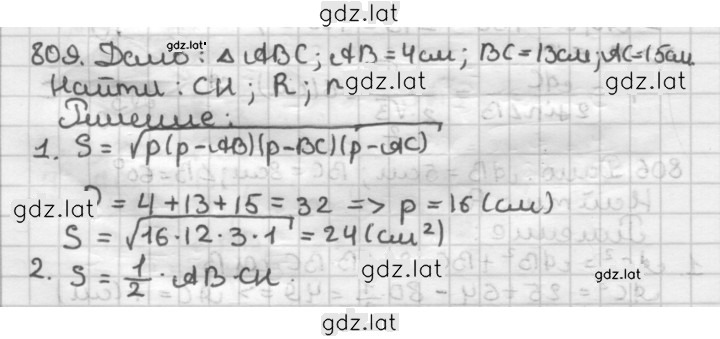 gdz.lat
809. Дано: gdz.lat △ABC; AB = 4см; BC = 13см; AC = 15см.
Найти: CH; R; r gdz.lat gdz.lat
Решение:
1. S = √p(p-AB)(p-BC)(p-AC)
gdz.lat P = 4 + 13 + 15 = 32 => p = 16 (см)
S = √16·12·3·1 = 24 (см²)
2. S = 1/2 · AB · CH. gdz.lat gdz.lat
gdz.lat